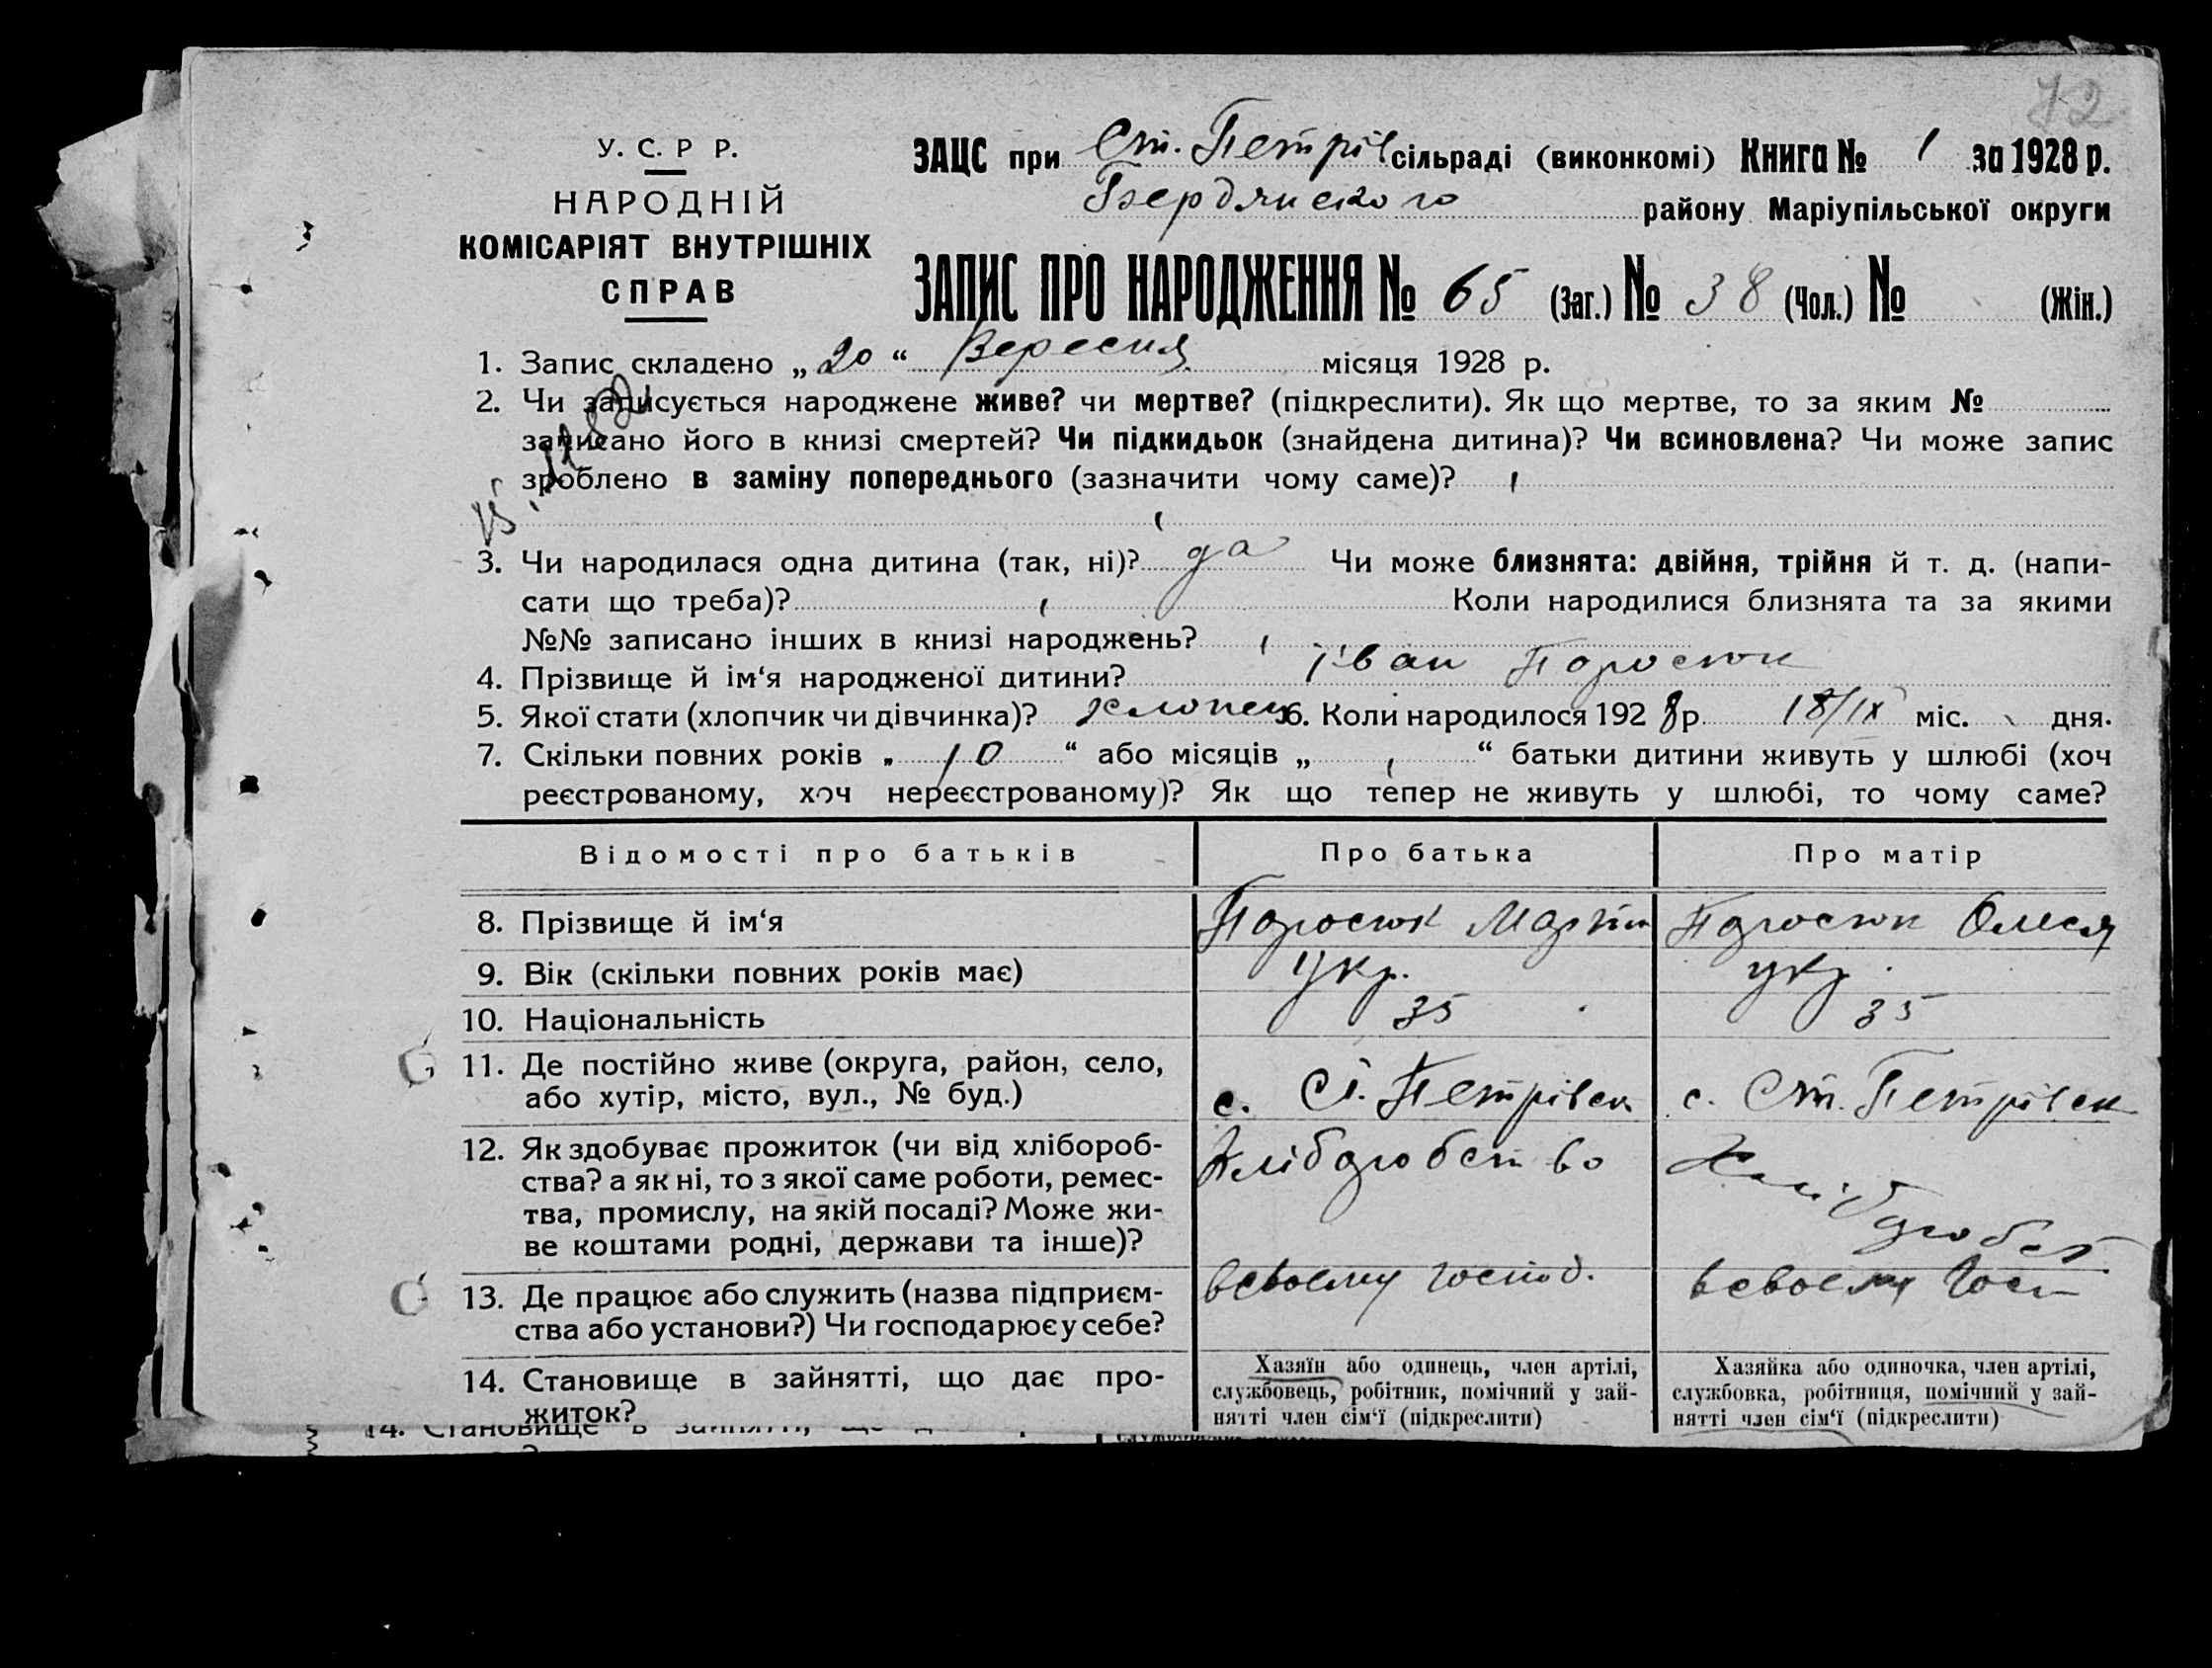 72
У. С. Р Р.
НАРОДНІЙ
КОМІСАРІЯТ ВНУТРІШНІХ
СПРАВ
ЗАЦС при Ст. Петрів сільраді (виконкомі) Книга № 1 за 1928 р.
Бердянского району Маріупільської округи
ЗАПИС ПРО НАРОДЖЕННЯ № 65 (Заг.) № 38 (Чол.) № (Жін.)
1. Запис складено „20“ Вересня місяця 1928 р.
2. Чи записується народжене живе? чи мертве? (підкреслити). Як що мертве, то за яким №
записано його в книзі смертей? Чи підкидьок (знайдена дитина)? Чи всиновлена? Чи може запис
зроблено в заміну попереднього (зазначити чому саме)?
3. Чи народилася одна дитина (так, ні)? да Чи може близнята: двійня, трійня й т. д. (напи-
сати що треба)? Коли народилися близнята та за якими
№№ записано інших в книзі народжень?
4. Прізвище й ім‘я народженої дитини? Іван Поросюк
5. Якої стати (хлопчик чи дівчинка)? хлопец 6. Коли народилося 1928 р. 18/IX міс. дня.
7. Скільки повних років „10“ або місяців „ “ батьки дитини живуть у шлюбі (хоч
реєстрованому, хоч нереєстрованому)? Як що тепер не живуть у шлюбі, то чому саме?
Відомості про батьків Про батька Про матір
8. Прізвище й ім‘я Поросюк Мартин Поросюк Олеся
9. Вік (скільки повних років має) Укр. укр.
10. Національність 35 35
11. Де постійно живе (округа, район, село,
або хутір, місто, вул., № буд.) с. Ст. Петрівск с. Ст. Петрівск
12. Як здобуває прожиток (чи від хлібороб-
ства? а як ні, то з якої саме роботи, ремес-
тва, промислу, на якій посаді? Може жи-
ве коштами родні, держави та інше)?
Хліборобство Хліборобст
13. Де працює або служить (назва підприєм-
ства або установи?) Чи господарює у себе?
всвоему господ. всвоему Госп
14. Становище в зайнятті, що дає про-
житок?
Хазяїн або одинець, член артілі,
службовець, робітник, помічний у зай-
нятті член сім‘ї (підкреслити)
Хазяйка або одиночка, член артілі,
службовка, робітниця, помічний у зай-
нятті член сім‘ї (підкреслити)
14. Становище в зайнятті, що д